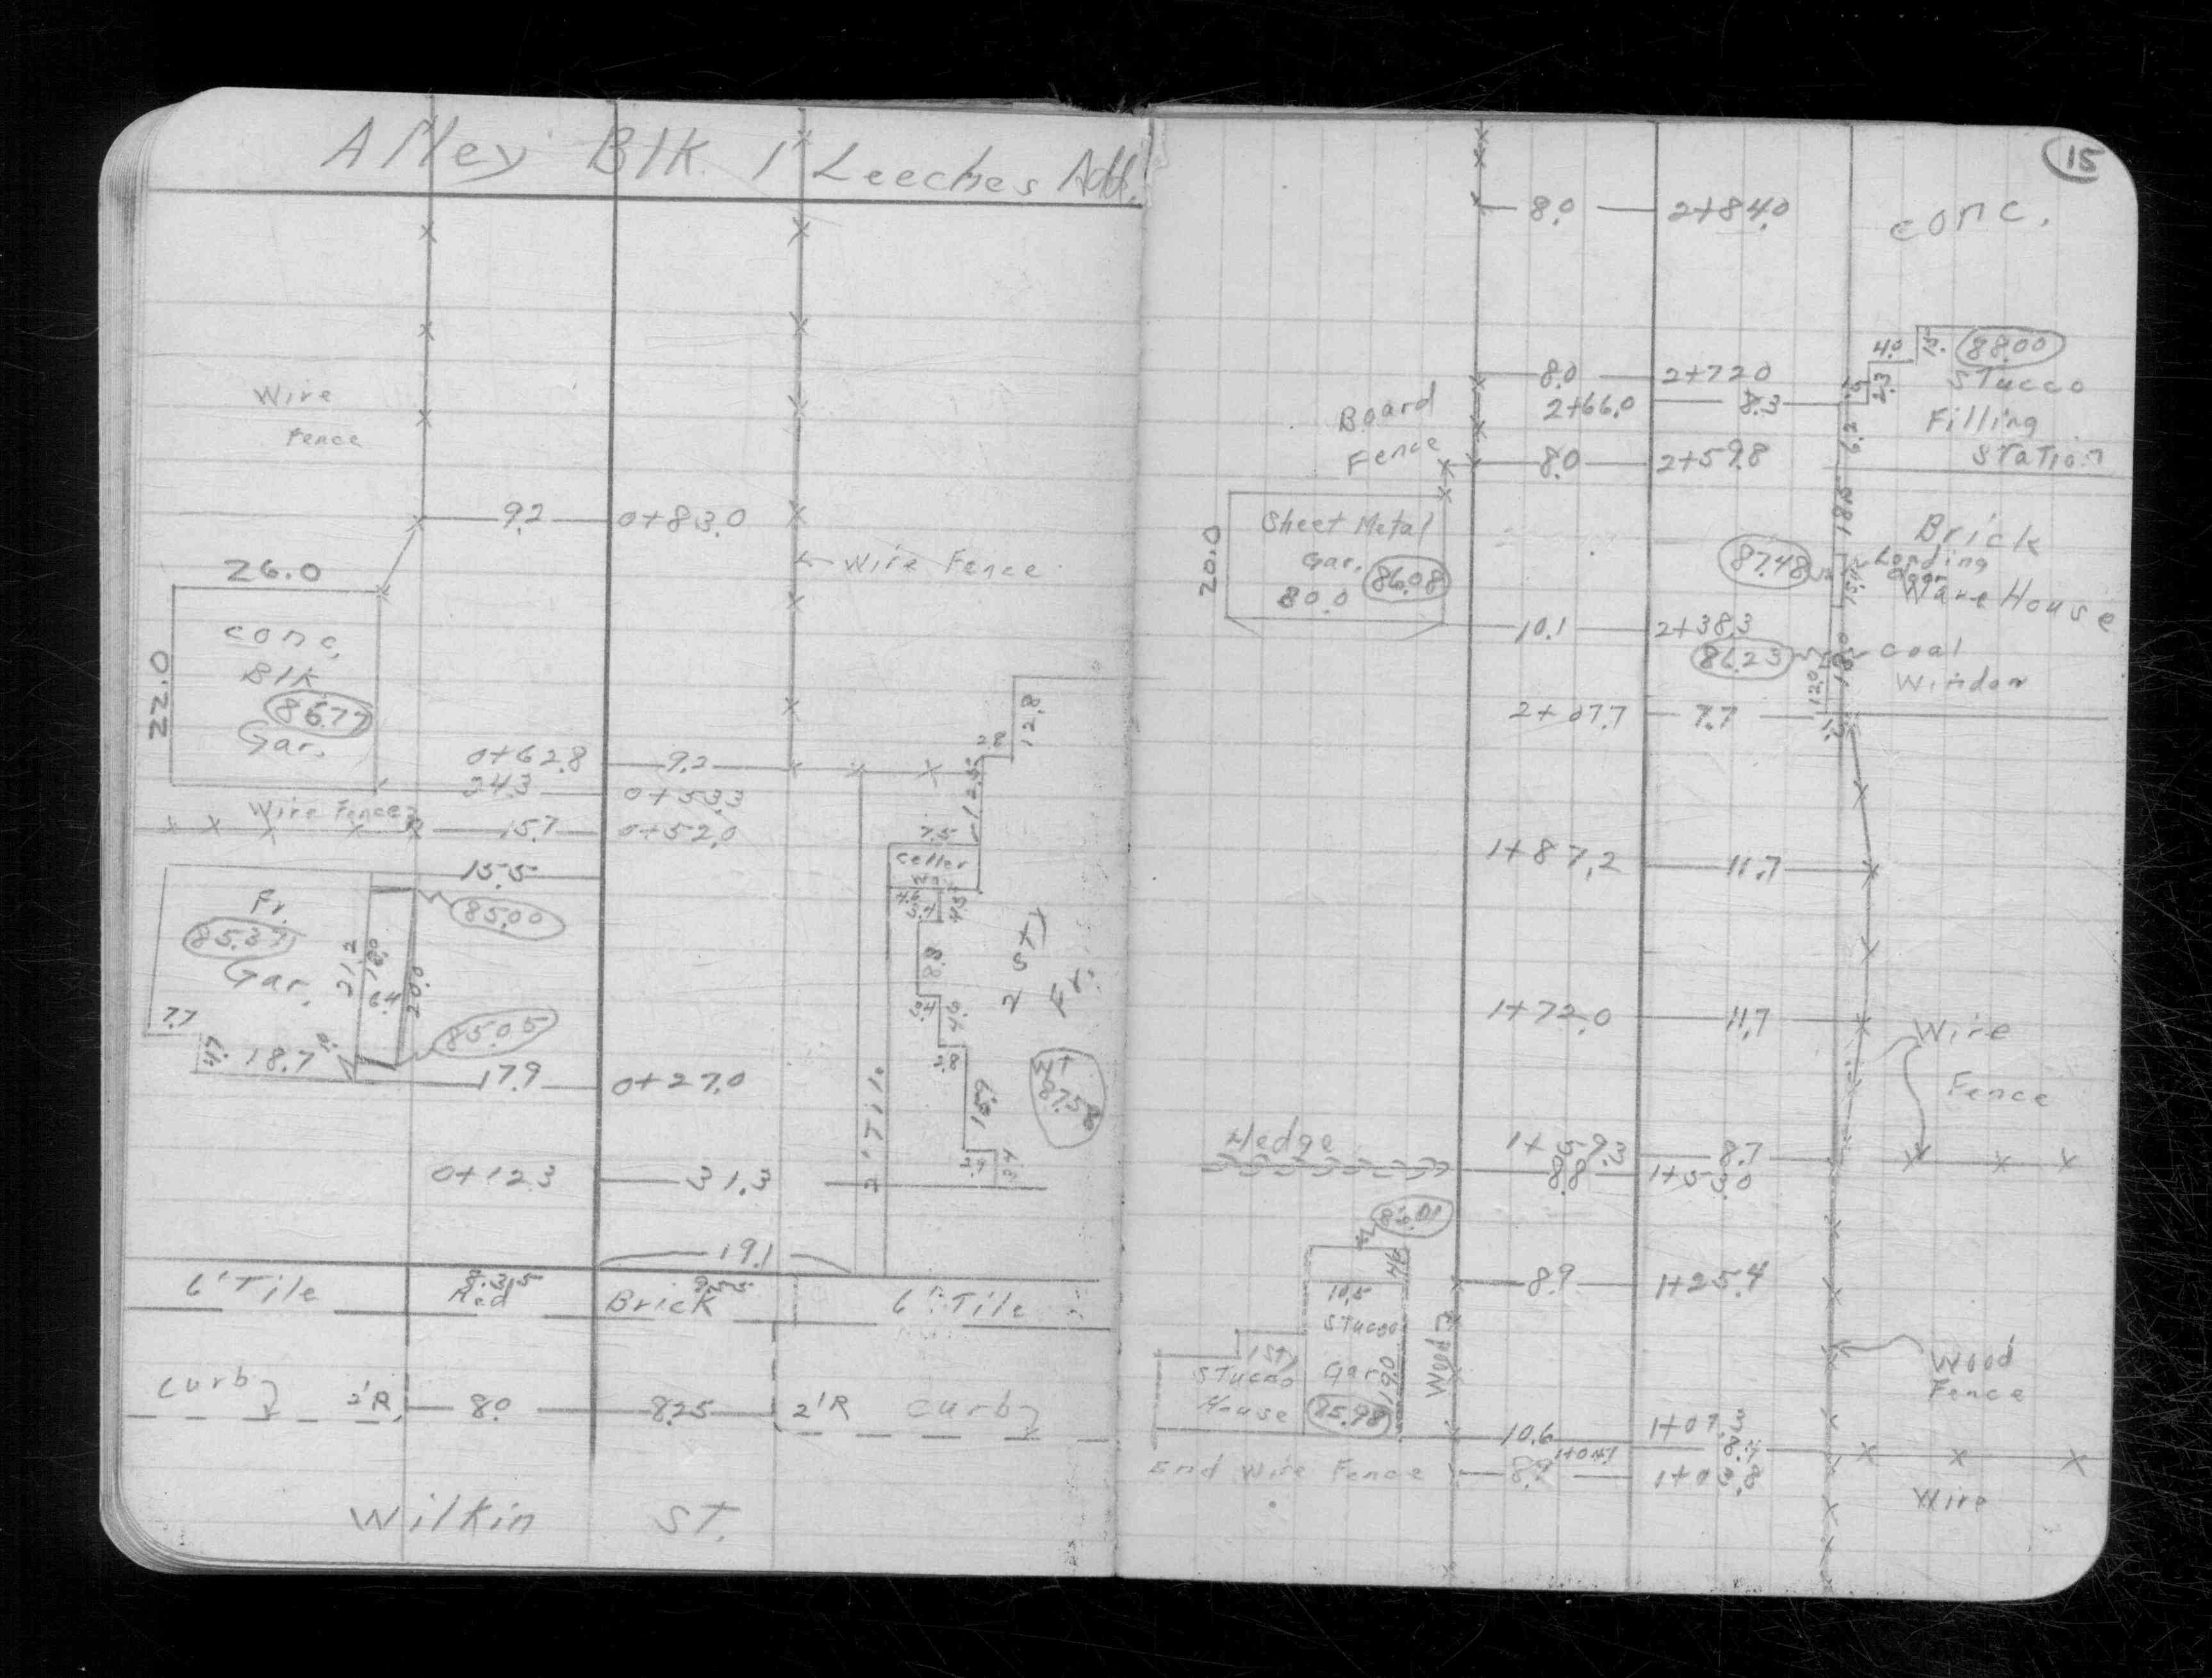 Alley Blk. 1 Leeches Add.
Wire
Fence
9.2 0+83.0
Wire Fence
26.0
22.0
conc.
Blk
86.77
Gar.
12.8
2.8
0+62.8 9.2
12.5
24.3 0+53.3
Wire Fence
15.7 0+52.0
7.5
Celler
Way
15.5
4.6
3.4
4.5
Fr.
85.37
Gar.
85.00
21.2
18.0
6.4
20.0
8.8
2 sty
Fr.
7.7
4.7
18.7
85.05
4.6
2.8
17.9 0+27.0
WT
87.5
2' Tile
15.9
3.4
0+12.3 31.3
19.1
6' Tile
8.35
Red
9.55
Brick
6' Tile
curb
2'R 8.0 8.25 2'R
curb
Wilkin ST.
15
8.0 2+84.0
conc.
4.0
88.00
Stucco
Filling
Station
8.0 2+72.0
2+66.0 8.3
2.3
6.2
Board
Fence
8.0 2+59.8
18.5
Brick
Ware House
Sheet Metal
Gar.
80.0
86.08
20.0
87.48
Loading
Door
15.4
10.1 2+38.3
86.23
coal
Window
18.0
12.0
2+07.7 7.7
1+87.2 11.7
1+72.0 11.7
Wire
Fence
Hedge
1+59.3 8.7
8.8 1+53.0
86.01
4.6
8.9 1+25.4
10.5
Stucco
Gar
19.0
85.98
1 Sty
Stucco
House
Wood
Wood
Fence
10.6 1+07.3
1+04.1 8.4
End Wire Fence
8.9 1+03.8
Wire